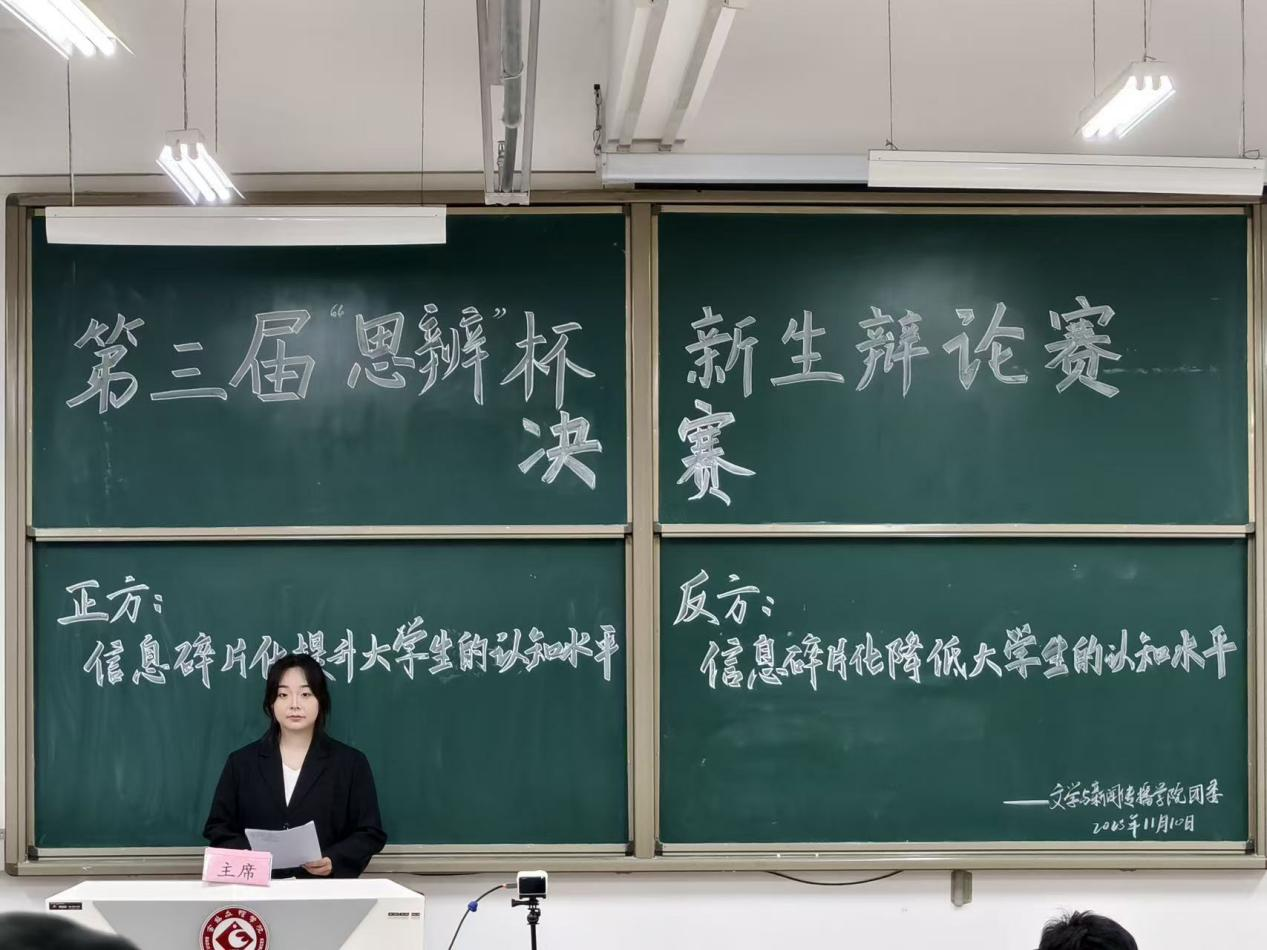 第三届“思辨”杯新生辩论赛
决赛
正方：
信息碎片化提升大学生的认知水平
反方：
信息碎片化降低大学生的认知水平
——文学与新闻传播学院团委
2023年11月10日
主席